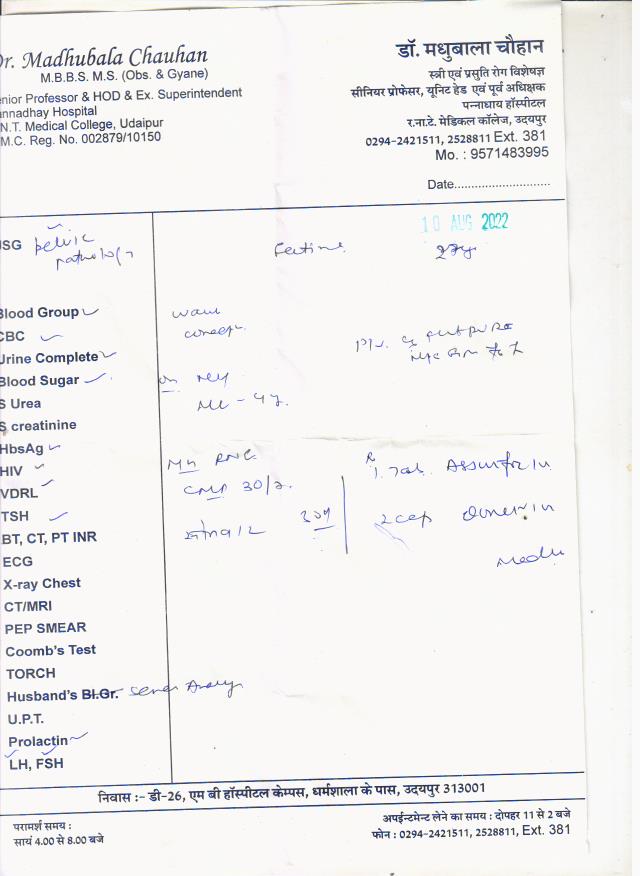 Dr. Madhubala Chauhan
M.B.B.S. M.S. (Obs. & Gyane)
enior Professor & HOD & Ex. Superintendent
annadhay Hospital
N.T. Medical College, Udaipur
M.C. Reg. No. 002879/10150
डॉ. मधुबाला चौहान
स्त्री एवं प्रसुति रोग विशेषज्ञ
सीनियर प्रोफेसर, यूनिट हेड एवं पूर्व अधिक्षक
पन्नाधाय हॉस्पीटल
र.ना.टे. मेडिकल कॉलेज, उदयपुर
0294-2421511, 2528811 Ext. 381
Mo. : 9571483995
Date............................
10 AUG 2022
USG pelvic
Blood Group
want
CBC
Urine Complete
Blood Sugar
S Urea
S creatinine
HbsAg
HIV
VDRL
1. Tab.
TSH
2 cap
BT, CT, PT INR
ECG
X-ray Chest
CT/MRI
PEP SMEAR
Coomb's Test
TORCH
Husband's Bl.Gr. semen Analy
U.P.T.
Prolactin
LH, FSH
निवास :- डी-26, एम बी हॉस्पीटल केम्पस, धर्मशाला के पास, उदयपुर 313001
परामर्श समय :
सायं 4.00 से 8.00 बजे
अपईन्टमेन्ट लेने का समय : दोपहर 11 से 2 बजे
फोन : 0294-2421511, 2528811, Ext. 381